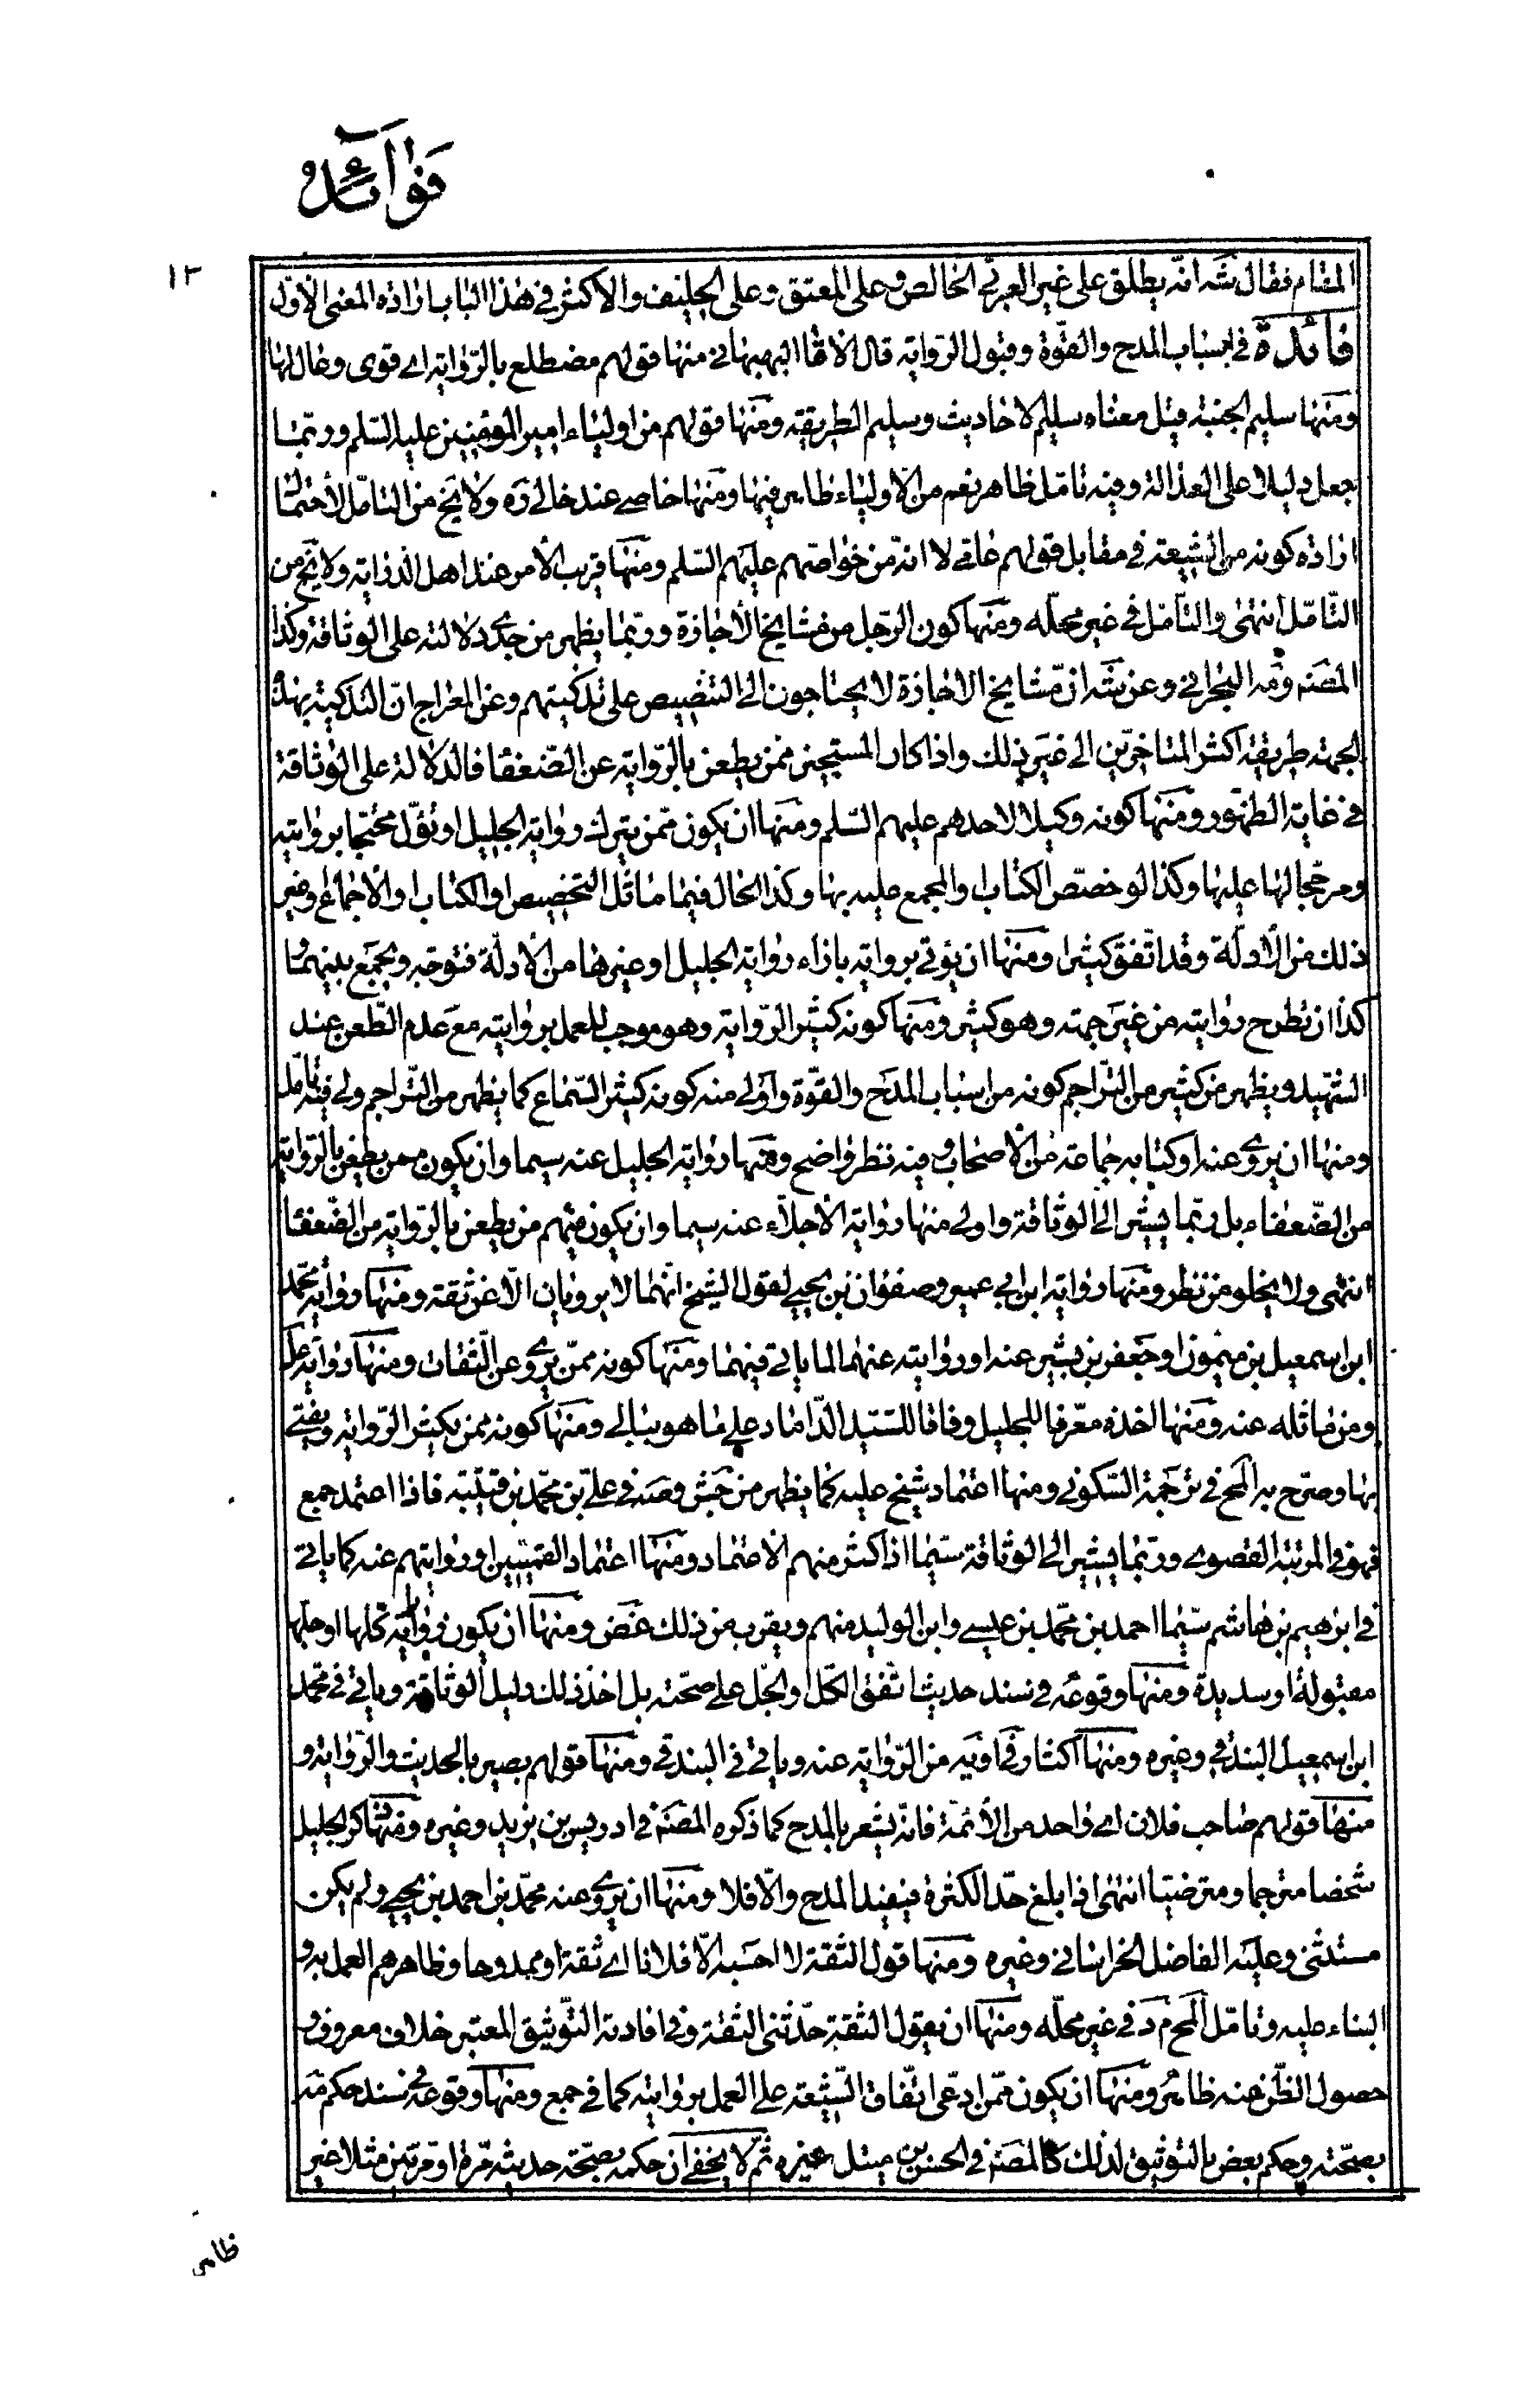 فوائد
١٣
المقام فقال شه انه يطلق على غير العربي الخالص وعلى المعتق وعلى الحليف والاكثر في هذا الباب ارادة المعنى الاول
فائدة في اسباب المدح والقوّة وقبول الرّواية قال الاقا البهبهاني منها قولهم مضطلع بالرّواية اى قوى وعال لها
ومنها سليم الجنبة قيل معناه سليم الاحاديث وسليم الطريقة ومنها قولهم من اولياء امير المؤمنين عليه السّلم وربّما
جعل دليلا على العدالة وفيه تامّل ظاهر نعم من الاولياء ظاهر فيها ومنها خاصى عند خالى ره ولا يخ من التامّل لاحتمال
ارادة كونه من الشيعة في مقابل قولهم عامى لا انّه من خواصّهم عليهم السّلم ومنها قريب الأمر عند اهل الدراية ولا يخ من
التّامّل انتهى والتامّل في غير محلّه ومنها كون الرّجل من مشايخ الأجازة وربّما يظهر من جدى دلالته على الوثاقة وكذا
المصنه ومه البحراني وعن شه انّ مشايخ الاجازة لا يحتاجون الى التنصيص على تذكيتهم وعن المعراج انّ التذكية بهذه
الجهة طريقة اكثر المتاخّرين الى غير ذلك واذا كان المستجيز ممّن يطعن بالرّواية عن الضّعفا فالدلالة على الوثاقة
في غاية الظهور ومنها كونه وكيلا لاحدهم عليهم السّلم ومنها ان يكون ممّن يترك رواية الجليل او تؤوّل محتجّا بروايته
ومرجحا لها عليها وكذا لو خصّص الكتاب والمجمع عليه بها وكذا الحال فيما ماثل التخصيص او الكتاب والأجماع وغير
ذلك من الأدلّة وقد اتّفق كثيرا ومنها ان يؤتى برواية بازاء رواية الجليل او غيرها من الأدلّة فتوجّه ويجمع بينهما و
كذا ان تطرح روايته من غير جهته وهو كثير ومنها كونه كثير الرّواية وهو موجب للعمل بروايته مع عدم الطّعن عند
الشّهيد ويظهر من كثير من التّراجم كونه من اسباب المدح والقوّة واولى منه كونه كثير السّماع كما يظهر من التّراجم ولى فيه تامّل
ومنها ان يروى عنه او كتابه جماعة من الأصحاب وفيه نظر واضح ومنها رواية الجليل عنه سيما وان يكون ممن يطعن بالرّواية
من الضّعفاء بل ربّما يشير الى الوثاقة واولى منها رواية الأجلّاء عنه سيما وان يكون منهم من يطعن بالرّواية من الضّعفا
انتهى ولا يخلو من نظر ومنها رواية ابن ابى عمير وصفوان بن يحيى لقول الشيخ انّهما لا يرويان الّا عن ثقة ومنها رواية محمّد
ابن اسمعيل بن ميمون او جعفر بن بشير عنه او روايته عنهما لما ياتي فيهما ومنها كونه ممّن يروى عن الثّقات ومنها رواية على
ومن ماثله عنه ومنها اخذه معرّفا للجليل وفاقا للسّيّد الدّاماد على ما هو ببالى ومنها كونه ممن يكثر الرّواية ويفتى
بها وصرّح به المح في ترجمة السّكوني ومنها اعتماد شيخ عليه كما يظهر من جش وصه في علىّ بن محمّد بن قتيبة فاذا اعتمد جمع
فهو في المرتبة القصوى وربّما يشير الى الوثاقة سيّما اذا كثر منهم الاعتماد ومنها اعتماد القميّين او روايتهم عنه كما ياتي
في ابرهيم بن هاشم سيّما احمد بن محمّد بن عيسى وابن الوليد منهم ويقرب من ذلك غض ومنها ان يكون رواياته كلها او جلها
مقبولة او سديدة ومنها وقوعه في سند حديث اتّفق الكل او الجلّ على صحّته بل اخذ ذلك دليل الوثاقة وياتي في محمّد
ابن اسمعيل البندقي وغيره ومنها اكثار في اويه من الرّواية عنه وياتي في البندقي ومنها قولهم بصير بالحديث والرّواية و
منها قولهم صاحب فلان اى واحد من الأئمّة فانّه يشعر بالمدح كما ذكره المصنه في ادريس بن يزيد وغيره ومنها ذكر الجليل
شخصا مترحما ومترضيا انتهى اذا بلغ حدّ الكثرة فيفيد المدح والّا فلا ومنها ان يروى عنه محمّد بن احمد بن يحيى ولم يكن
مستثنى وعليه الفاضل الخراساني وغيره ومنها قول الثقة لا احسبه الّا فلانا اى ثقة او ممدوحا وظاهرهم العمل به و
البناء عليه وتامّل المح مد في غير محلّه ومنها ان يقول الثقة حدّثني الثقة وفي افادته التّوثيق المعتبر خلاف معروف و
حصول الظّن عنه ظاهر ومنها ان يكون ممّن ادعى اتّفاق الشّيعة على العمل بروايته كما في جمع ومنها وقوعه في سند حكم مه
بصحّته وحكم بعض بالتوثيق لذلك كالمصنه في الحسن بن متيل غيره ثمّ لا يخفى ان حكمه بصحّة حديثه مرّة او مرتين مثلا غير
ظاهر